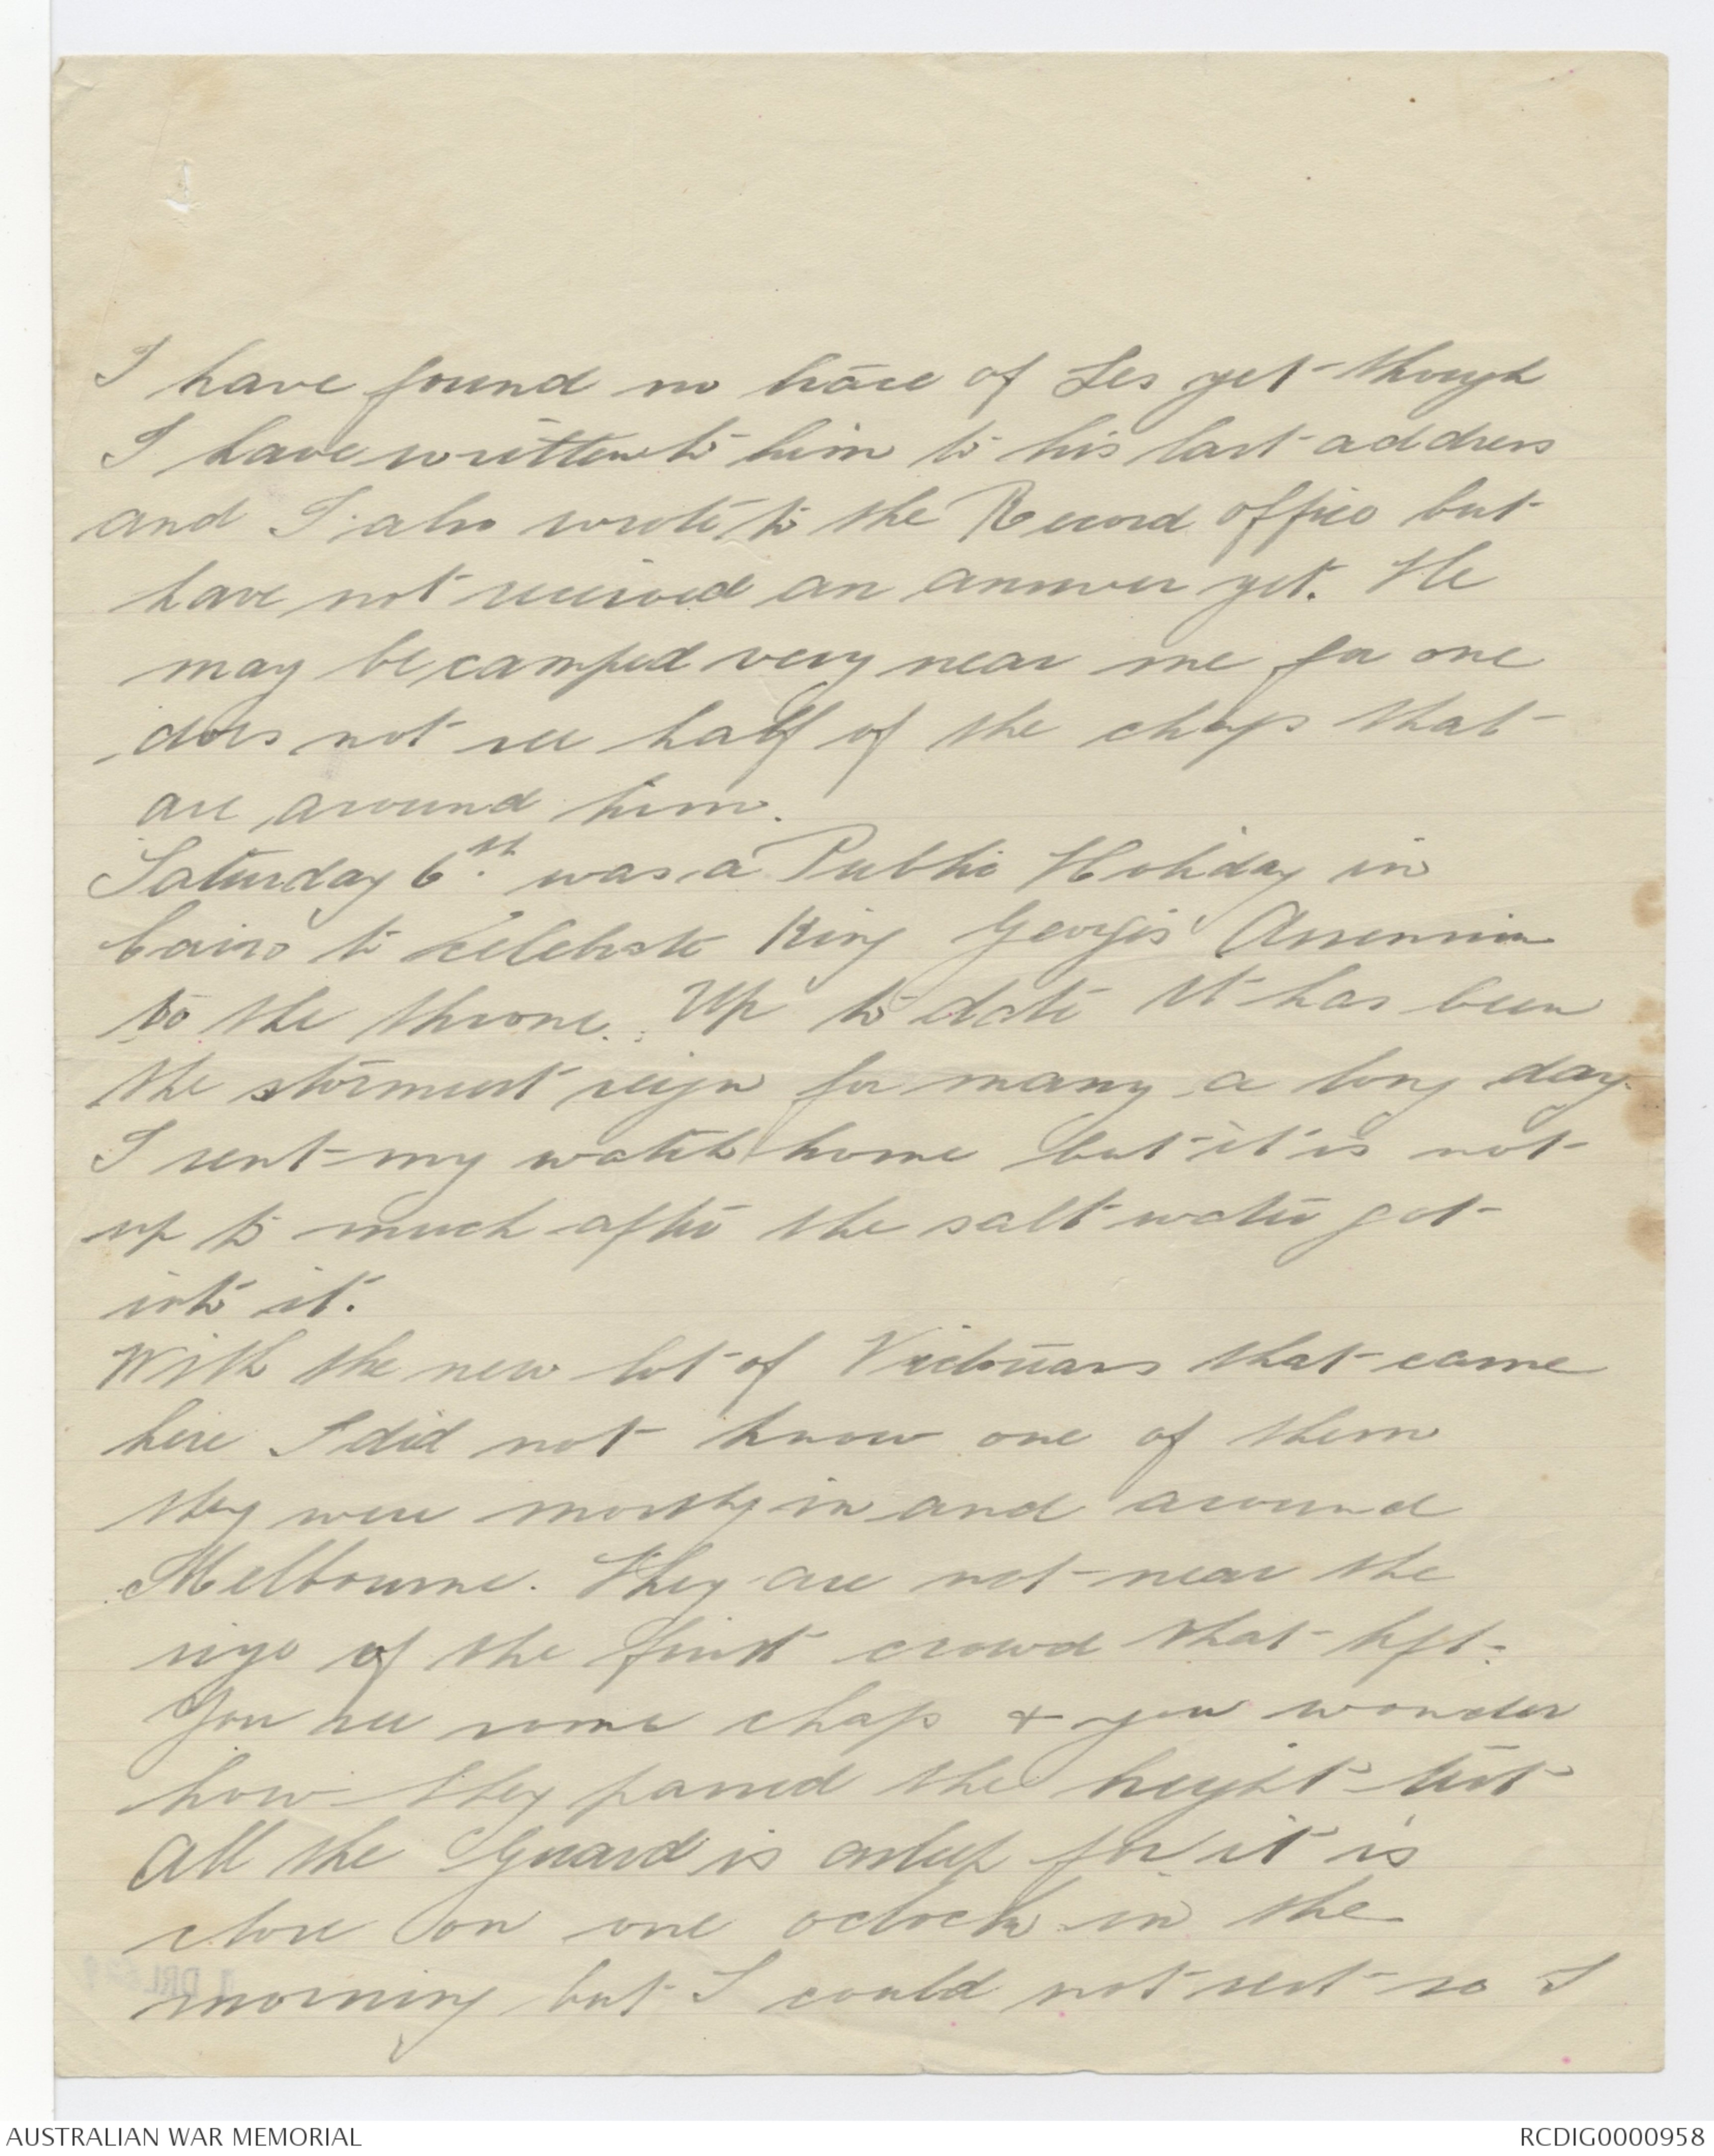 I have found no trace of Les yet though
I have written to him to his last address
and I also wrote to the Record office but
have not received an answer yet. He
may be camped very near me for one
does not see half of the chaps that
are around him.
Saturday 6th. was a Public Holiday in
Cairo to celebrate King George's
to the throne. Up to date it has been
the stormiest reign for many a long day.
I sent my watch home but it is not
up to much after the salt water got
into it.
With the new lot of Victorians that came
here I did not know one of them
they were mostly in and around
Melbourne. They are not near the
size of the first crowd that left.
You see some chaps & you wonder
how they passed the height test
All the Guard is asleep for it is
close on one oclock in the
morning but I could not rest so I
AUSTRALIAN WAR MEMORIAL
RCDIG0000958